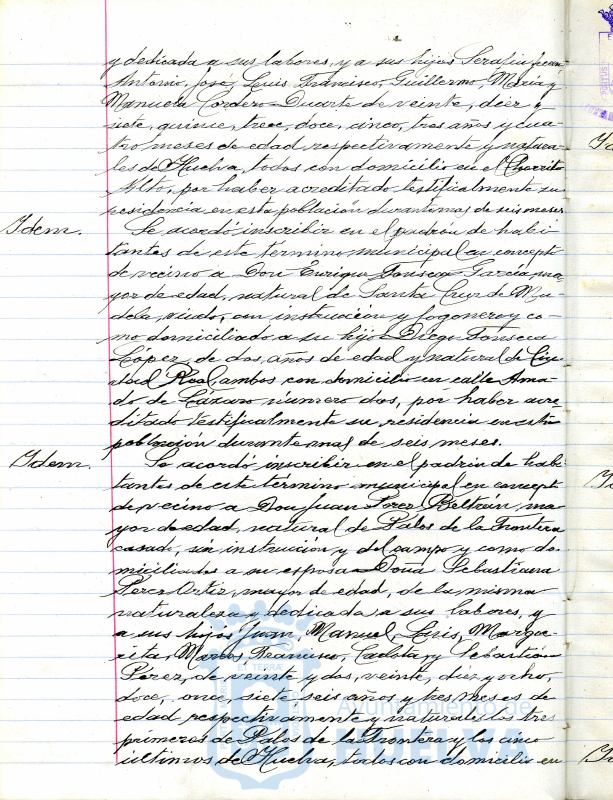 y dedicada a sus labores, y a sus hijos Serafin Juan
Antonio, José, Luis, Francisco, Guillermo, María y
Manuela Cordero Ducorte de veinte, diez y
siete, quince, trece, doce, cinco, tres años y cua-
tro meses de edad respectivamente y natura-
les de Huelva, todos con domicilio en el Chorrito
Alto, por haber acreditado testificalmente su
residencia en esta población durante mas de seis meses
Idem.
Se acordó inscribir en el padron de habi-
tantes de este termino municipal en concepto
de vecino a Don Enrique Fonseca García, ma-
yor de edad, natural de Santa Cruz de Mu-
dela, viudo, con instrucción y fogonero y co-
mo domiciliado a su hijo Diego Fonseca
López, de dos años de edad y natural de Ciu-
dad Real, ambos con domicilio en calle Ama-
do de Lázaro número dos, por haber acre-
ditado testificalmente su residencia en esta
población durante mas de seis meses.
Idem.
Se acordó inscribir en el padrón de habi-
tantes de este término municipal en concepto
de vecino a Don Juan Perez Beltrán, ma-
yor de edad, natural de Palos de la Frontera
casado, sin instrucción y del campo y como do-
miciliados a su esposa Doña Sebastiana
Perez Ortiz, mayor de edad, de la misma
naturaleza y dedicada a sus labores, y
a sus hijos Juan, Manuel, Luis, Marga-
rita, Marcos, Francisco, Carlota y Sebastián
Pérez, de veinte y dos, veinte, diez y ocho,
doce, once, siete seis años y tres meses de
edad respectivamente y naturales los tres
primeros de Palos de la Frontera y los cinco
últimos de Huelva, todos con domicilio en
Ayuntamiento de
HUELVA